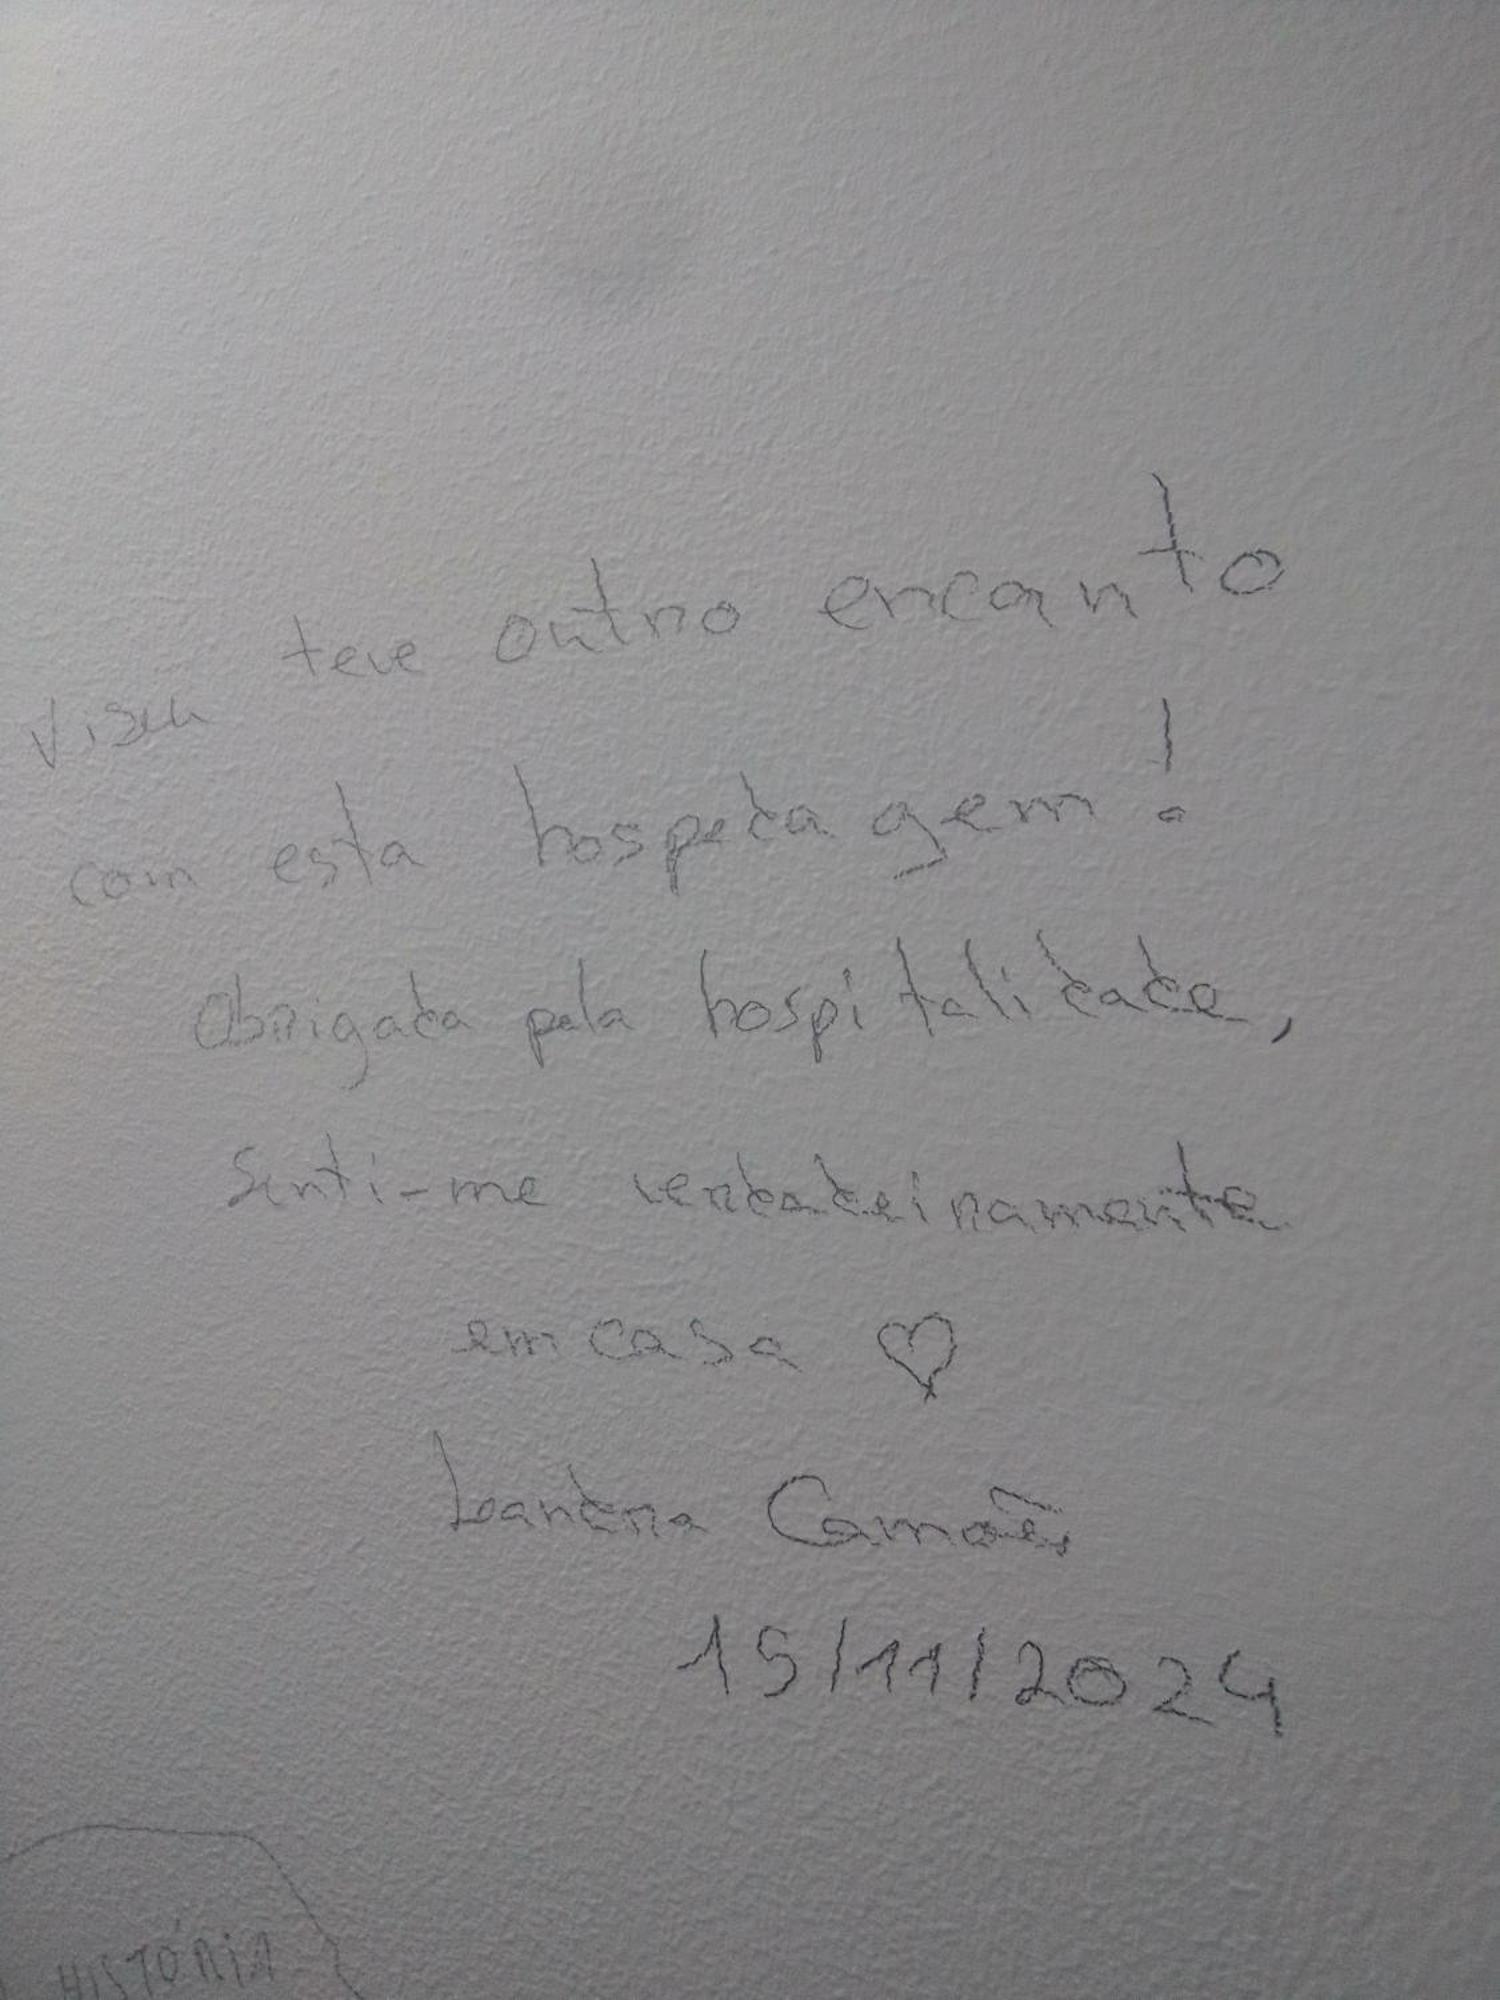 Viseu teve outro encanto
com esta hospedagem!
Obrigada pela hospitalidade,
Senti-me verdadeiramente
em casa ♡
Leandra Camões
15/11/2024
HISTÓRIA